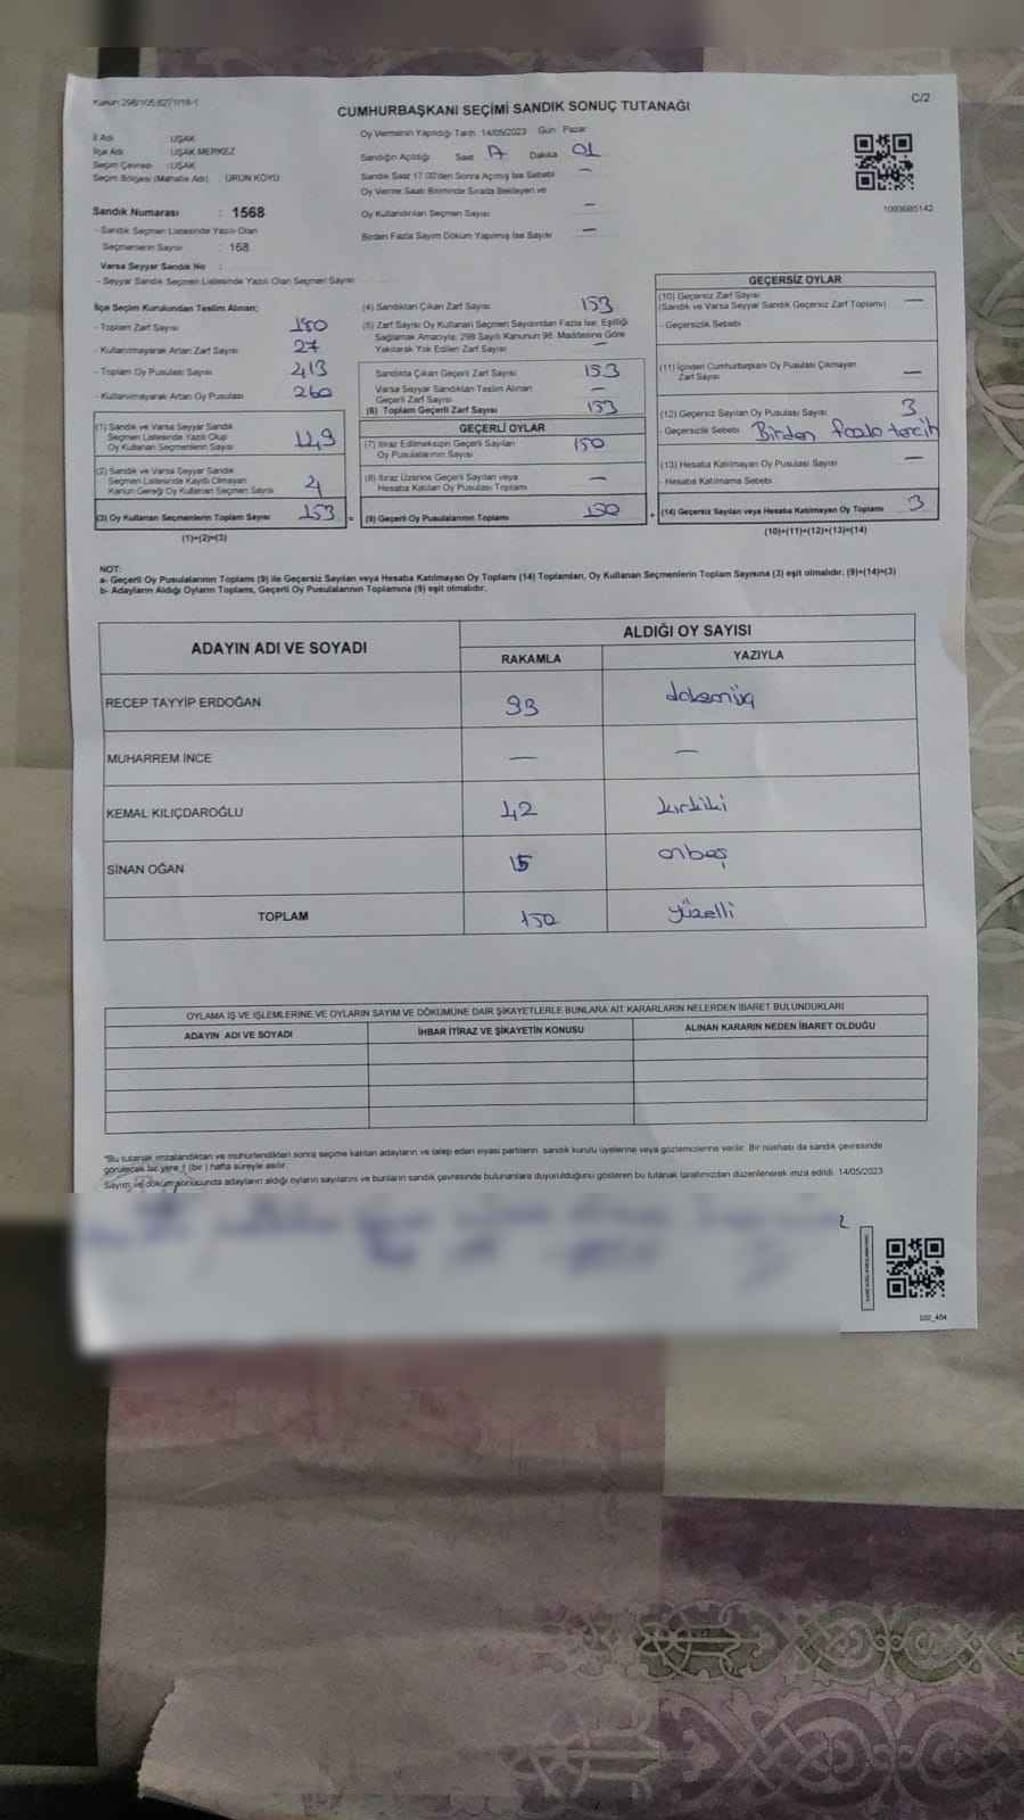 Kanun:298/105,6271/18-1
C/2
CUMHURBAŞKANI SEÇİMİ SANDIK SONUÇ TUTANAĞI
İl Adı : UŞAK
İlçe Adı : UŞAK MERKEZ
Seçim Çevresi : UŞAK
Seçim Bölgesi (Mahalle Adı) : ÜRÜN KÖYÜ
Sandık Numarası : 1568
- Sandık Seçmen Listesinde Yazılı Olan
Seçmenlerin Sayısı : 168
Varsa Seyyar Sandık No :
- Seyyar Sandık Seçmen Listesinde Yazılı Olan Seçmen Sayısı
Oy Vermenin Yapıldığı Tarih 14/05/2023 Gün Pazar
Sandığın Açıldığı Saat 17 Dakika 01
Sandık Saat 17.00'den Sonra Açılmış İse Sebebi —
Oy Verme Saati Bitiminde Sırada Bekleyen ve
Oy Kullandırılan Seçmen Sayısı —
Birden Fazla Sayım Döküm Yapılmış İse Sayısı —
1093685142
İlçe Seçim Kurulundan Teslim Alınan;
- Toplam Zarf Sayısı 180
- Kullanılmayarak Artan Zarf Sayısı 27
- Toplam Oy Pusulası Sayısı 413
- Kullanılmayarak Artan Oy Pusulası 260
(1) Sandık ve Varsa Seyyar Sandık
Seçmen Listesinde Yazılı Olup
Oy Kullanan Seçmenlerin Sayısı 149
(2) Sandık ve Varsa Seyyar Sandık
Seçmen Listesinde Kayıtlı Olmayan
Kanun Gereği Oy Kullanan Seçmen Sayısı 4
(3) Oy Kullanan Seçmenlerin Toplam Sayısı 153 =
(1)+(2)=(3)
(4) Sandıktan Çıkan Zarf Sayısı 153
(5) Zarf Sayısı Oy Kullanan Seçmen Sayısından Fazla İse, Eşitliği
Sağlamak Amacıyla, 298 Sayılı Kanunun 98. Maddesine Göre
Yakılarak Yok Edilen Zarf Sayısı —
Sandıkta Çıkan Geçerli Zarf Sayısı 153
Varsa Seyyar Sandıktan Teslim Alınan
Geçerli Zarf Sayısı —
(6) Toplam Geçerli Zarf Sayısı 153
GEÇERLİ OYLAR
(7) İtiraz Edilmeksizin Geçerli Sayılan
Oy Pusulalarının Sayısı 150
(8) İtiraz Üzerine Geçerli Sayılan veya
Hesaba Katılan Oy Pusulası Toplamı —
(9) Geçerli Oy Pusulalarının Toplamı 150 +
GEÇERSİZ OYLAR
(10) Geçersiz Zarf Sayısı
(Sandık ve Varsa Seyyar Sandık Geçersiz Zarf Toplamı) —
- Geçersizlik Sebebi
(11) İçinden Cumhurbaşkanı Oy Pusulası Çıkmayan
Zarf Sayısı —
(12) Geçersiz Sayılan Oy Pusulası Sayısı 3
- Geçersizlik Sebebi Birden fazla tercih
(13) Hesaba Katılmayan Oy Pusulası Sayısı —
- Hesaba Katılmama Sebebi
(14) Geçersiz Sayılan veya Hesaba Katılmayan Oy Toplamı 3
(10)+(11)+(12)+(13)=(14)
NOT:
a- Geçerli Oy Pusulalarının Toplamı (9) ile Geçersiz Sayılan veya Hesaba Katılmayan Oy Toplamı (14) Toplamları, Oy Kullanan Seçmenlerin Toplam Sayısına (3) eşit olmalıdır. (9)+(14)=(3)
b- Adayların Aldığı Oyların Toplamı, Geçerli Oy Pusulalarının Toplamına (9) eşit olmalıdır.
ADAYIN ADI VE SOYADI
ALDIĞI OY SAYISI
RAKAMLA YAZIYLA
RECEP TAYYİP ERDOĞAN 93 doksanüç
MUHARREM İNCE — —
KEMAL KILIÇDAROĞLU 42 kırkiki
SİNAN OĞAN 15 onbeş
TOPLAM 150 yüzelli
OYLAMA İŞ VE İŞLEMLERİNE VE OYLARIN SAYIM VE DÖKÜMÜNE DAİR ŞİKAYETLERLE BUNLARA AİT KARARLARIN NELERDEN İBARET BULUNDUKLARI
ADAYIN ADI VE SOYADI İHBAR İTİRAZ VE ŞİKAYETİN KONUSU ALINAN KARARIN NEDEN İBARET OLDUĞU
*Bu tutanak imzalandıktan ve mühürlendikten sonra seçime katılan adayların ve talep eden siyasi partilerin sandık kurulu üyelerine veya gözlemcilerine verilir. Bir nüshası da sandık çevresinde
görülecek bir yere 1 (bir ) hafta süreyle asılır.
Sayım ve döküm sonucunda adayların aldığı oyların sayılarını ve bunların sandık çevresinde bulunanlara duyurulduğunu gösteren bu tutanak tarafımızdan düzenlenerek imza edildi. 14/05/2023